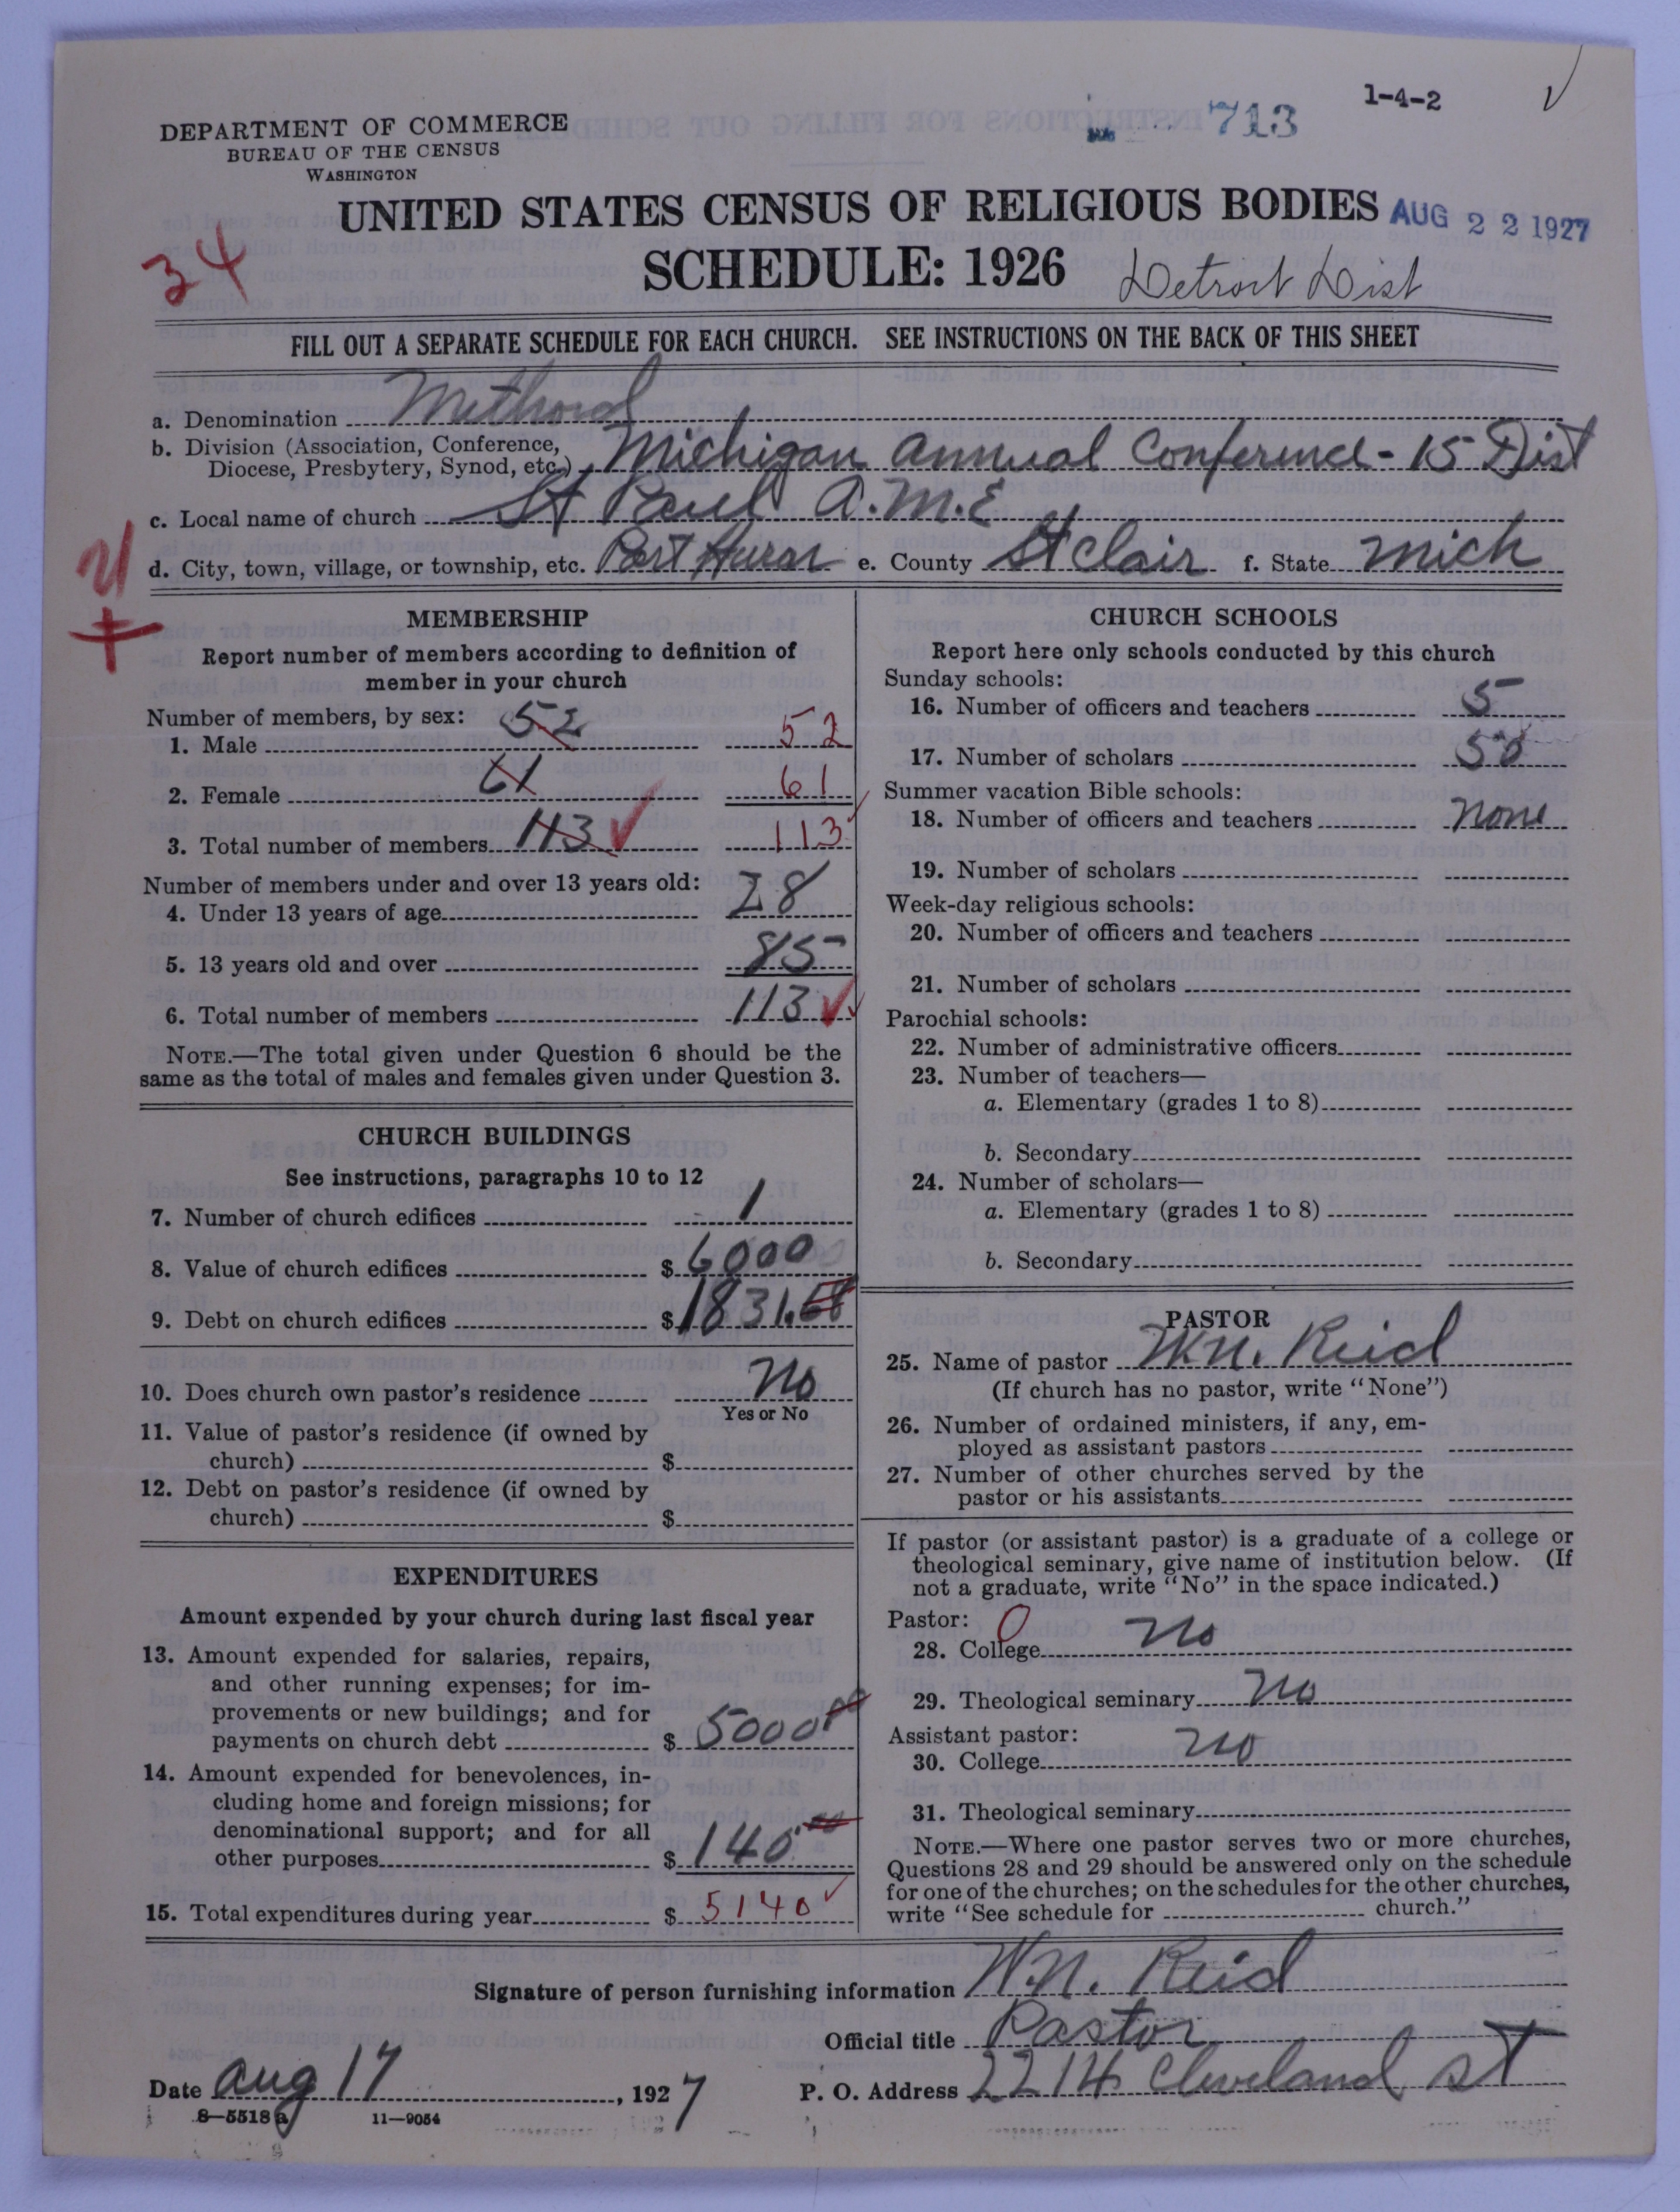 1-4-2
713
DEPARTMENT OF COMMERCE
BUREAU OF THE CENSUS
WASHINGTON
UNITED STATES CENSUS OF RELIGIOUS BODIES
AUG 22 1927
SCHEDULE: 1926
Detroit Dist
34
FILL OUT A SEPARATE SCHEDULE FOR EACH CHURCH. SEE INSTRUCTIONS ON THE BACK OF THIS SHEET
a. Denomination
b. Division (Association, Conference,
Diocese, Presbytery, Synod, etc.) Michigan Annual Conference - 15 Dist
c. Local name of church St Paul A.M.E
d. City, town, village, or township, etc. Port Huron e. County St Clair f. State Mich
MEMBERSHIP
Report number of members according to definition of
member in your church
Number of members, by sex:
1. Male 52 52
2. Female 61 61
3. Total number of members 113 113
Number of members under and over 13 years old:
4. Under 13 years of age 28
5. 13 years old and over 85
6. Total number of members 113
NOTE.—The total given under Question 6 should be the
same as the total of males and females given under Question 3.
CHURCH BUILDINGS
See instructions, paragraphs 10 to 12
7. Number of church edifices 1
8. Value of church edifices $ 6000
9. Debt on church edifices $ 1831.68
10. Does church own pastor's residence No
Yes or No
11. Value of pastor's residence (if owned by
church) $
12. Debt on pastor's residence (if owned by
church) $
EXPENDITURES
Amount expended by your church during last fiscal year
13. Amount expended for salaries, repairs,
and other running expenses; for im-
provements or new buildings; and for
payments on church debt $ 5000.00
14. Amount expended for benevolences, in-
cluding home and foreign missions; for
denominational support; and for all
other purposes $ 140.00
15. Total expenditures during year $ 5140
CHURCH SCHOOLS
Report here only schools conducted by this church
Sunday schools:
16. Number of officers and teachers 5
17. Number of scholars 50
Summer vacation Bible schools:
18. Number of officers and teachers None
19. Number of scholars
Week-day religious schools:
20. Number of officers and teachers
21. Number of scholars
Parochial schools:
22. Number of administrative officers
23. Number of teachers—
a. Elementary (grades 1 to 8)
b. Secondary
24. Number of scholars—
a. Elementary (grades 1 to 8)
b. Secondary
PASTOR
25. Name of pastor W.N. Reid
(If church has no pastor, write "None")
26. Number of ordained ministers, if any, em-
ployed as assistant pastors
27. Number of other churches served by the
pastor or his assistants
If pastor (or assistant pastor) is a graduate of a college or
theological seminary, give name of institution below. (If
not a graduate, write "No" in the space indicated.)
Pastor: 0
28. College No
29. Theological seminary No
Assistant pastor:
30. College No
31. Theological seminary
NOTE.—Where one pastor serves two or more churches,
Questions 28 and 29 should be answered only on the schedule
for one of the churches; on the schedules for the other churches,
write "See schedule for church."
Signature of person furnishing information W.N. Reid
Official title Pastor
Date Aug 17, 1927 P. O. Address 2214 Cleveland st
8—5518a 11—9054